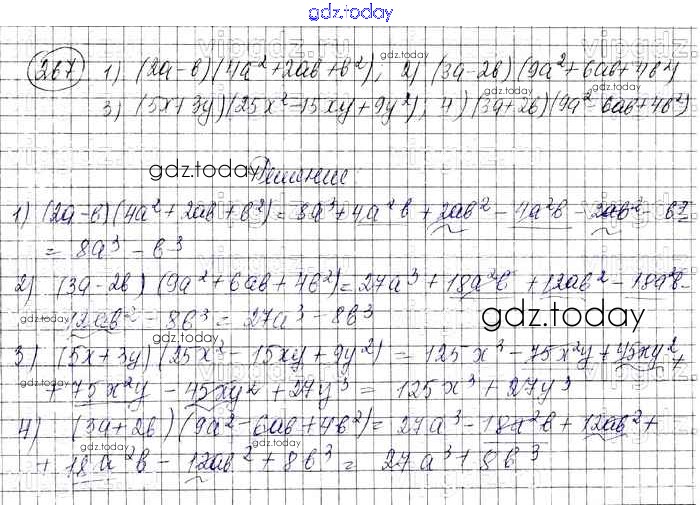 gdz.today
267 1) (2a-b)(4a²+2ab+b²); 2) (3a-2b)(9a²+6ab+4b²)
3) (5x+3y)(25x²-15xy+9y²); 4) (3a+2b)(9a²-6ab+4b²)
Решение:
1) (2a-b)(4a²+2ab+b²)=8a³+4a²b+2ab²-4a²b-2ab²-b³=
=8a³-b³
2) (3a-2b)(9a²+6ab+4b²)=27a³+18a²b+12ab²-18a²b-
-12ab²-8b³=27a³-8b³
3) (5x+3y)(25x²-15xy+9y²)=125x³-75x²y+45xy²+
+75x²y-45xy²+27y³=125x³+27y³
4) (3a+2b)(9a²-6ab+4b²)=27a³-18a²b+12ab²+
+18a²b-12ab²+8b³=27a³+8b³